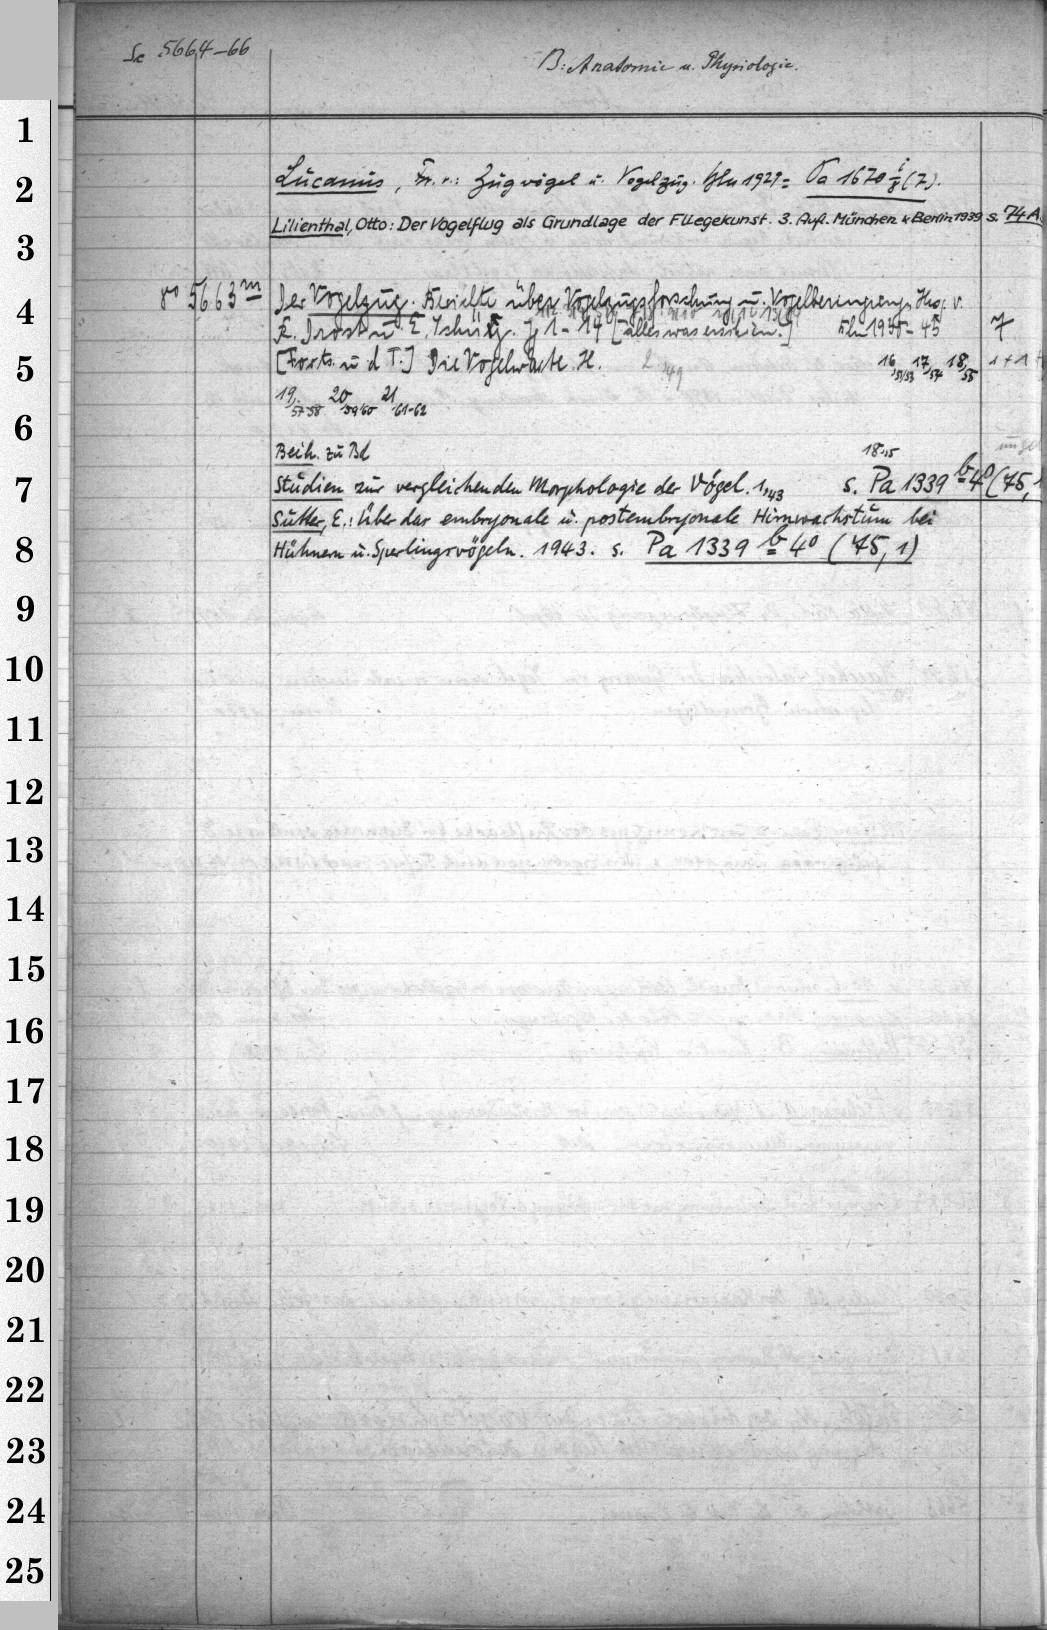 Sc 5664-66
B: Anatomie u. Physiologie.
1
2
3
4
5
6
7
8
9
10
11
12
13
14
15
16
17
18
19
20
21
22
23
24
25
Lucanus, Fr. v.: Zugvögel u. Vogelzug. Bln 1929 = Pa 1670 i/8 (7).
Lilienthal, Otto: Der Vogelflug als Grundlage der Fliegekunst. 3. Aufl. München & Berlin 1939 s. 74 A
8° 5663 m Der Vogelzug. Berichte über Vogelzugsforschung u. Vogelberingung. Hsg. v.
R. Drost u. E. Schüz. Jg 1-14 [alles was erschien.] Bln 1930-43 7
[Forts. u d T.] Die Vogelwarte. H. 2,49 16,51/53 17,54 18,55 1+1+
19,57-58 20,59/60 21,61-62
Beih. zu Bd 18,55
Studien zur vergleichenden Morphologie der Vögel. 1,43 s. Pa 1339 b 4° (75, 1
Sutter, E.: Über das embryonale u. postembryonale Hirnwachstum bei
Hühnern u. Sperlingsvögeln. 1943. s. Pa 1339 b 4° (75, 1)